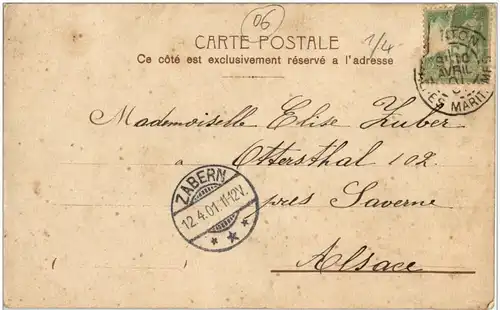 06
1/4
CARTE POSTALE
Ce côté est exclusivement réservé a l'adresse
AVRIL
MARIT
Mademoiselle Elise Zuber
à Ottersthal 102
près Saverne
Alsace
ZABERN
12.4.01.11-12V.